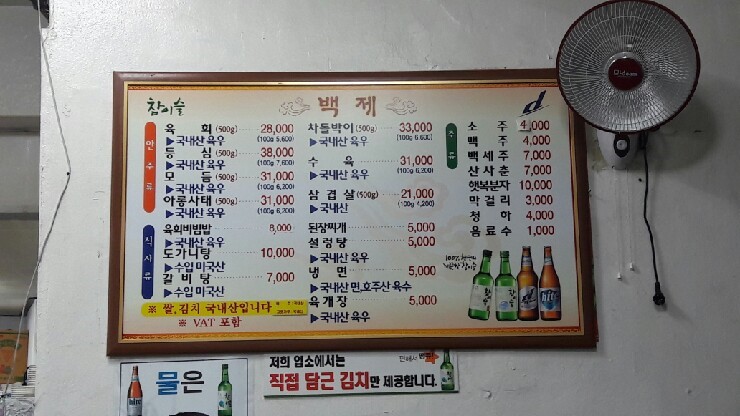 참이슬
백제
d
안주류
육회(500g) 28,000
▶국내산 육우 (100g 5,600)
등심(500g) 38,000
▶국내산 육우 (100g 7,600)
모듬(500g) 31,000
▶국내산 육우 (100g 6,200)
아롱사태(500g) 31,000
▶국내산 육우 (100g 6,200)
차돌박이(500g) 33,000
▶국내산 육우 (100g 6,600)
수육 31,000
▶국내산 육우 (100g 6,200)
삼겹살(500g) 21,000
▶국내산 (100g 4,200)
식사류
육회비빔밥 8,000
▶국내산 육우
도가니탕 10,000
▶수입 미국산
갈비탕 7,000
▶수입 미국산
된장찌개 5,000
설렁탕 5,000
▶국내산 육우
냉면 5,000
▶국내산 면,호주산 육수
육개장 5,000
▶국내산 육우
주류
소주 4,000
맥주 4,000
백세주 7,000
산사춘 7,000
햇복분자 10,000
막걸리 3,000
청하 4,000
음료수 1,000
※ 쌀,김치 국내산입니다
※ VAT 포함
물은
저희 업소에서는
직접 담근 김치만 제공합니다.